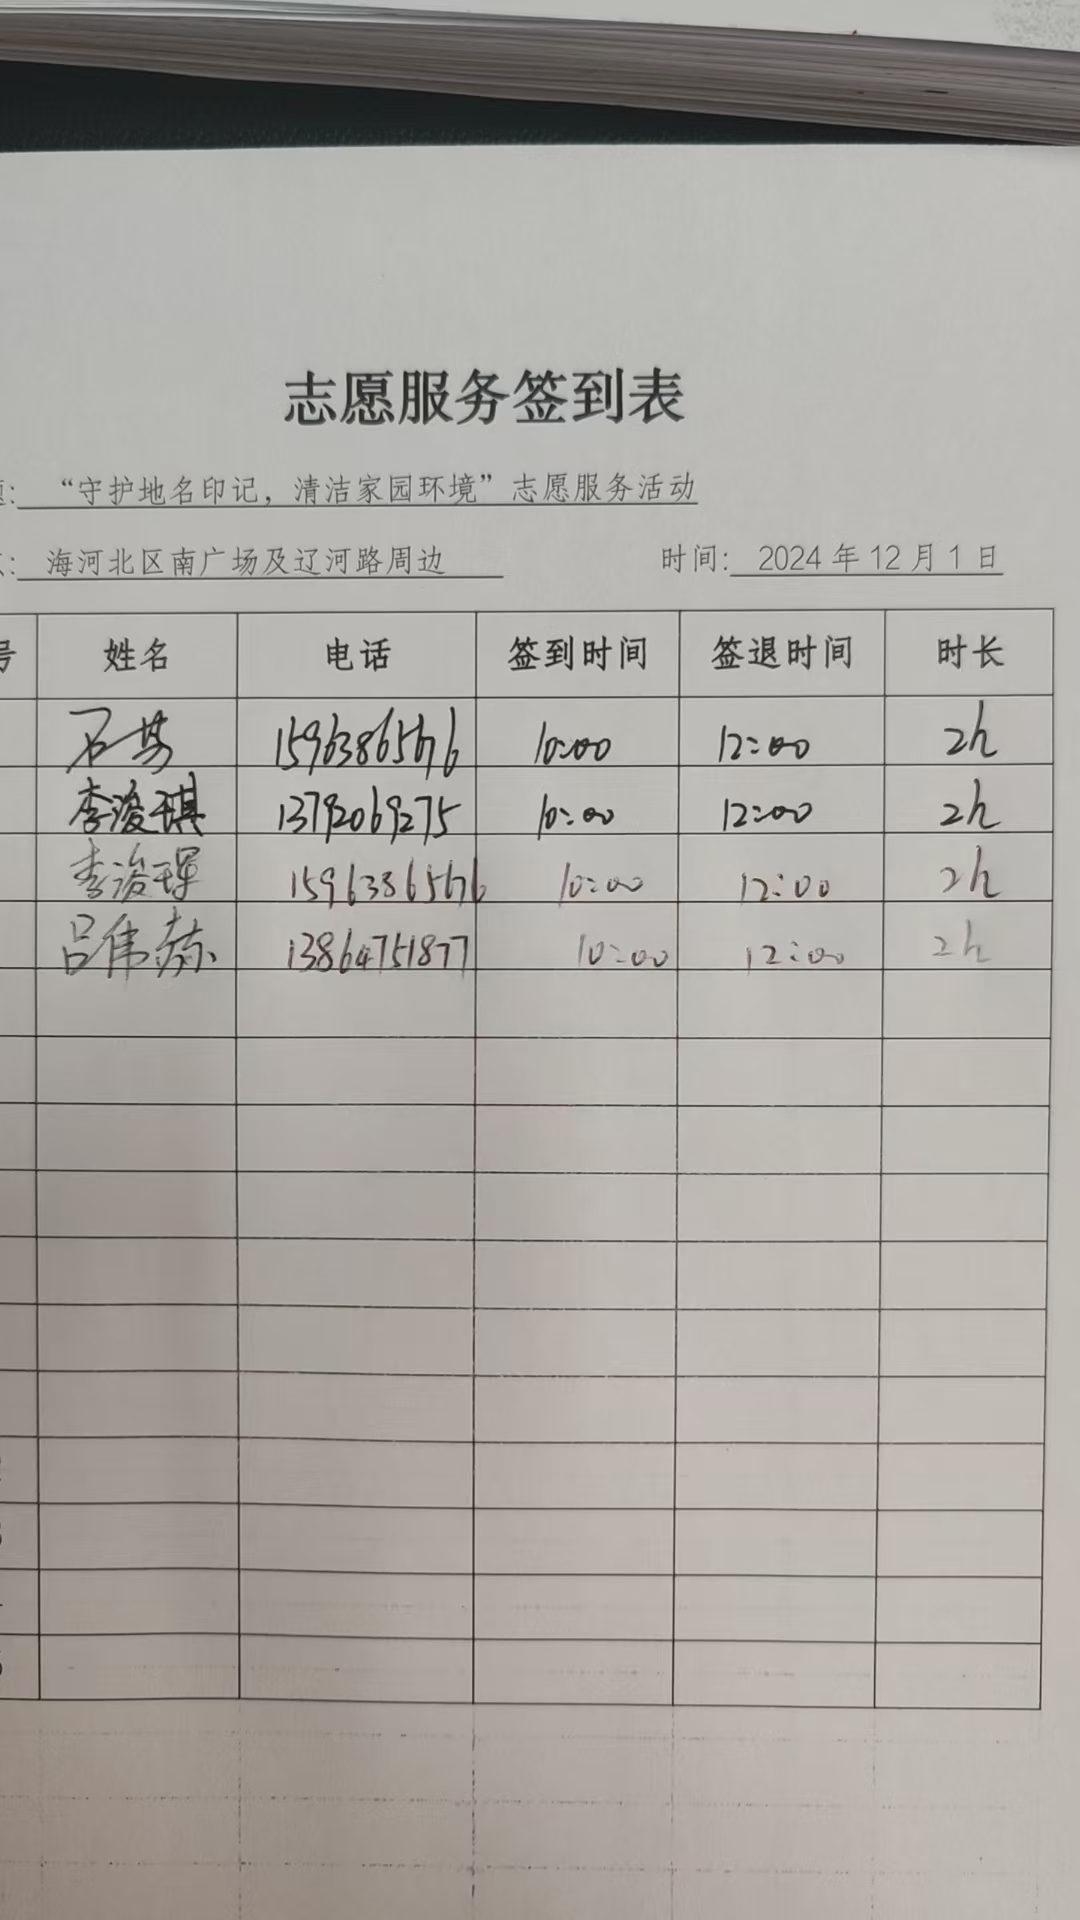 志愿服务签到表
题: “守护地名印记，清洁家园环境”志愿服务活动
: 海河北区南广场及辽河路周边 时间: 2024年12月1日
号 姓名 电话 签到时间 签退时间 时长
石 15963865676 10:00 12:00 2h
李浚琪 13792069275 10:00 12:00 2h
李浚珲 15963865676 10:00 12:00 2h
吕伟赫 13864751877 10:00 12:00 2h